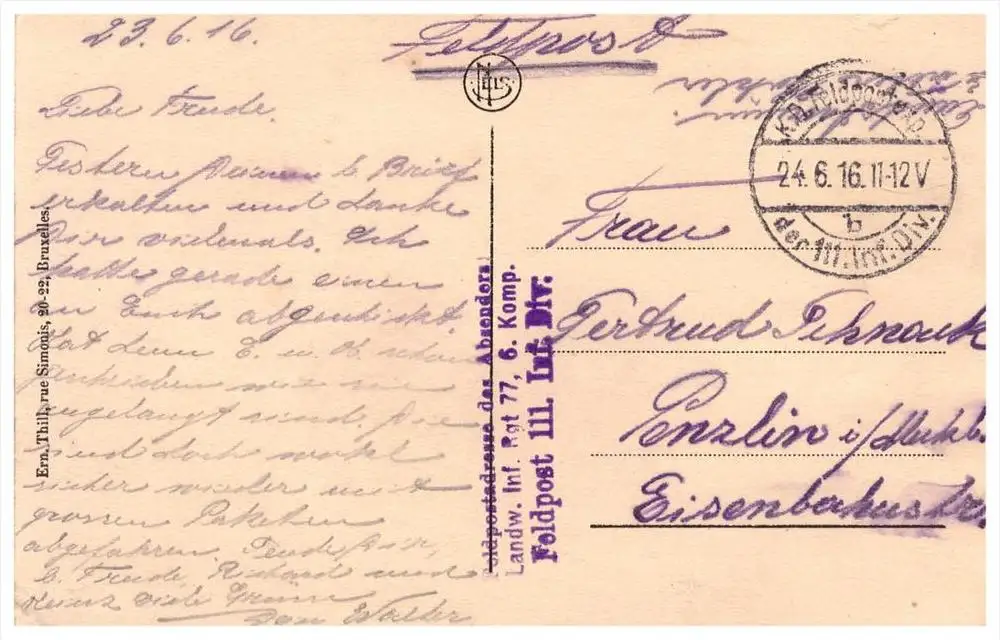 23. 6. 16.
Liebe Trude.
Gestern Deinen l. Brief
erhalten und danke
Dir vielmals. Ich
hatte gerade einen
an Euch abgeschickt.
Hat denn E. u. O. schon
geschrieben wie sie
angelangt sind. Sie
sind doch wohl
sicher wieder mit
grossen Paketen
abgefahren. Sende Dir,
l. Trude, Richard und
Heinz viele Grüsse
Dein Walter
Ern. Thill, rue Simonis, 20-22, Bruxelles.
NELS
Feldpostadresse des Absenders:
Landw. Inf. Rgt 77, 6. Komp.
Feldpost 111. Inf. Div.
Feldpost
K.D. Feldpostexp.
24. 6. 16. 11-12 V
b
der 111. Inf. Div.
Frau
Gertrud Schnauk
Penzlin i/Meckl.
Eisenbahnstr.